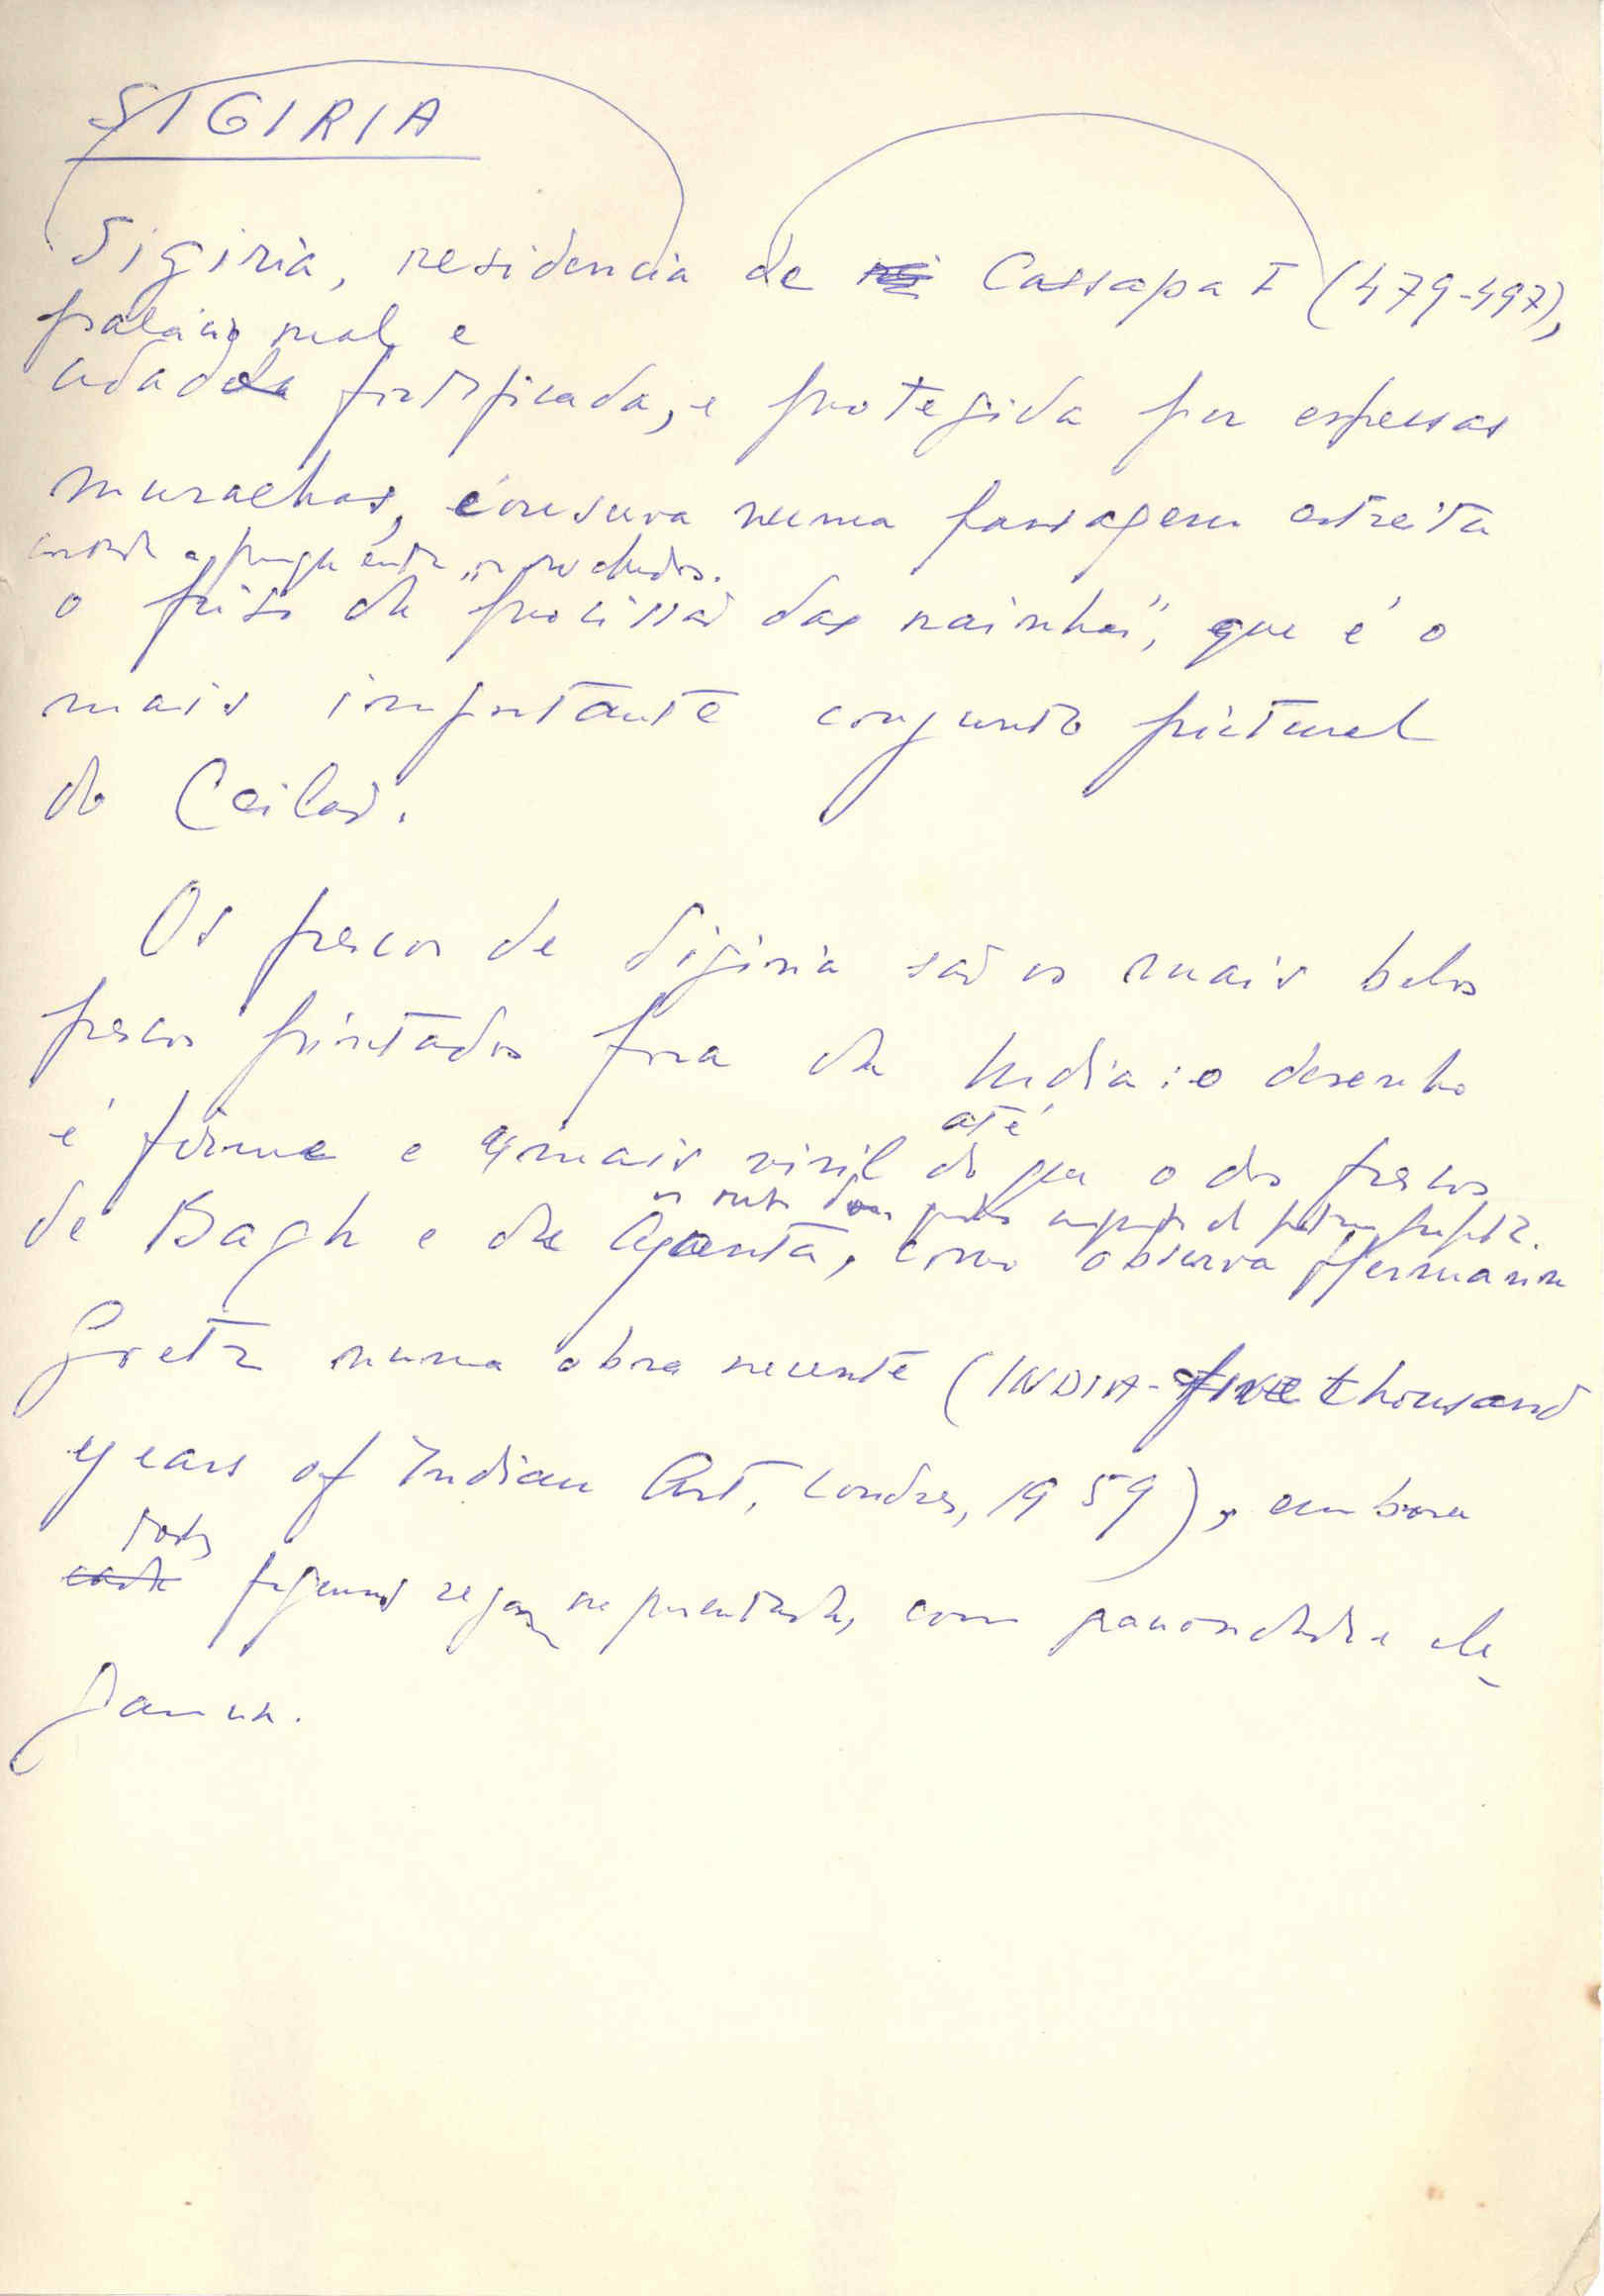 SIGIRIA
Sigiria, residencia de Cassapa I (479-497),
palácio real e
cidadela fortificada, e protegida por espessas
muralhas, conserva numa passagem estreita
entre os rochedos.
o friso da "procissão das rainhas", que é o
mais importante conjunto pictural
do Ceilão.
Os frescos de Sigiria são os mais belos
frescos pintados fora da India: o desenho
é firme e mais viril do que o dos frescos
até
os outros dois
de Bagh e de Ajanta, como observa Hermann
Goetz numa obra recente (INDIA - five thousand
years of Indian Art, Londres, 1959), embora
todas
figuras sejam representadas com graciosidade e ele-
gancia.